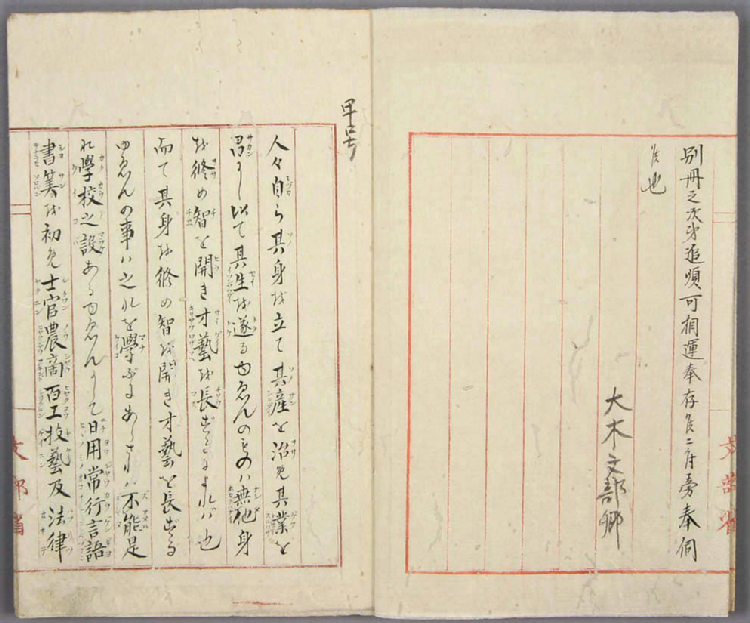 別冊之次第追順可相運奉存候ニ付旁奉伺
候也
大木文部卿
文部省
甲号
人々自ら其身を立て其産を治め其業を
昌にし以て其生を遂るゆゑんのものハ無他身
を修め智を開き才藝を長ずるによれバ也
而て其身を修め智を開き才藝を長ずる
ゆゑんの事ハ之れを學ぶにあらざれバ不能是
れ學校之設あるゆゑんにして日用常行言語
書算を初め士官農商百工技藝及法律
文部省